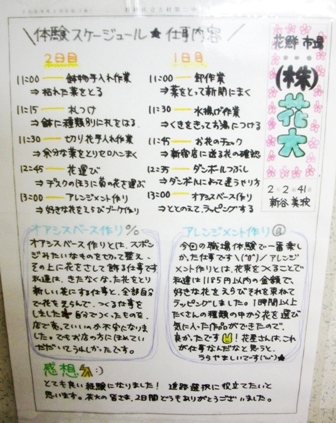 体験スケージュール★仕事内容
花鮮市場
(株)花大
2年2組41番
新谷 美波
2日目
11:00 鉢物手入れ作業
⇒枯れた葉をとる
11:15 札つけ
⇒鉢に種類別に札をはる
11:30 切り花手入れ作業
⇒余分な葉をとりセロハンまく
12:45 花運び
⇒デスクのほうに菊の花を運ぶ
13:00 アレンジメント作り
⇒好きな花をえらびブーケ作り
1日目
11:00 卸作業
⇒葉をとって新聞にまく
11:30 水揚げ作業
⇒くきをきってお湯につける
12:00 お花のチェック
12:35 ダンボールつぶし
⇒ダンボール
13:00 オアシスベース作り
⇒ととのえてラッピングする
オアシスベース作り
オアシスベース作りとは、スポン
ジみたいなものをてって整え、
その上に花をさして飾る仕事です
私達は、きたなくなった花をとり
新しい花にさす仕事と、全部自分
で花をえらんで、つくる仕事を
しました★自分でつくったものを、
店で売っていいのか不安になりま
した。でもお店の方にほめてい
ただいてうれしかったです。
アレンジメント作り@
今回の職場体験で一番楽し
かった仕事です\(^o^)/アレンジ
メント作りとは、花束をつくることで
私達は1185円以内の金額で、
好きな花をえらびそれを束ねて
ラッピングしました。1時間以上
たくさんの種類の中から花を選び
気に入った作品ができたので、
良かったです 花屋さんは、これ
が仕事なんだなと思うと、
うらやましいです(^ω^)★
感想
とても良い経験になりました! 進路選択に役立てたいと
思います。花大の皆さま、2日間どうもありがとうございました。